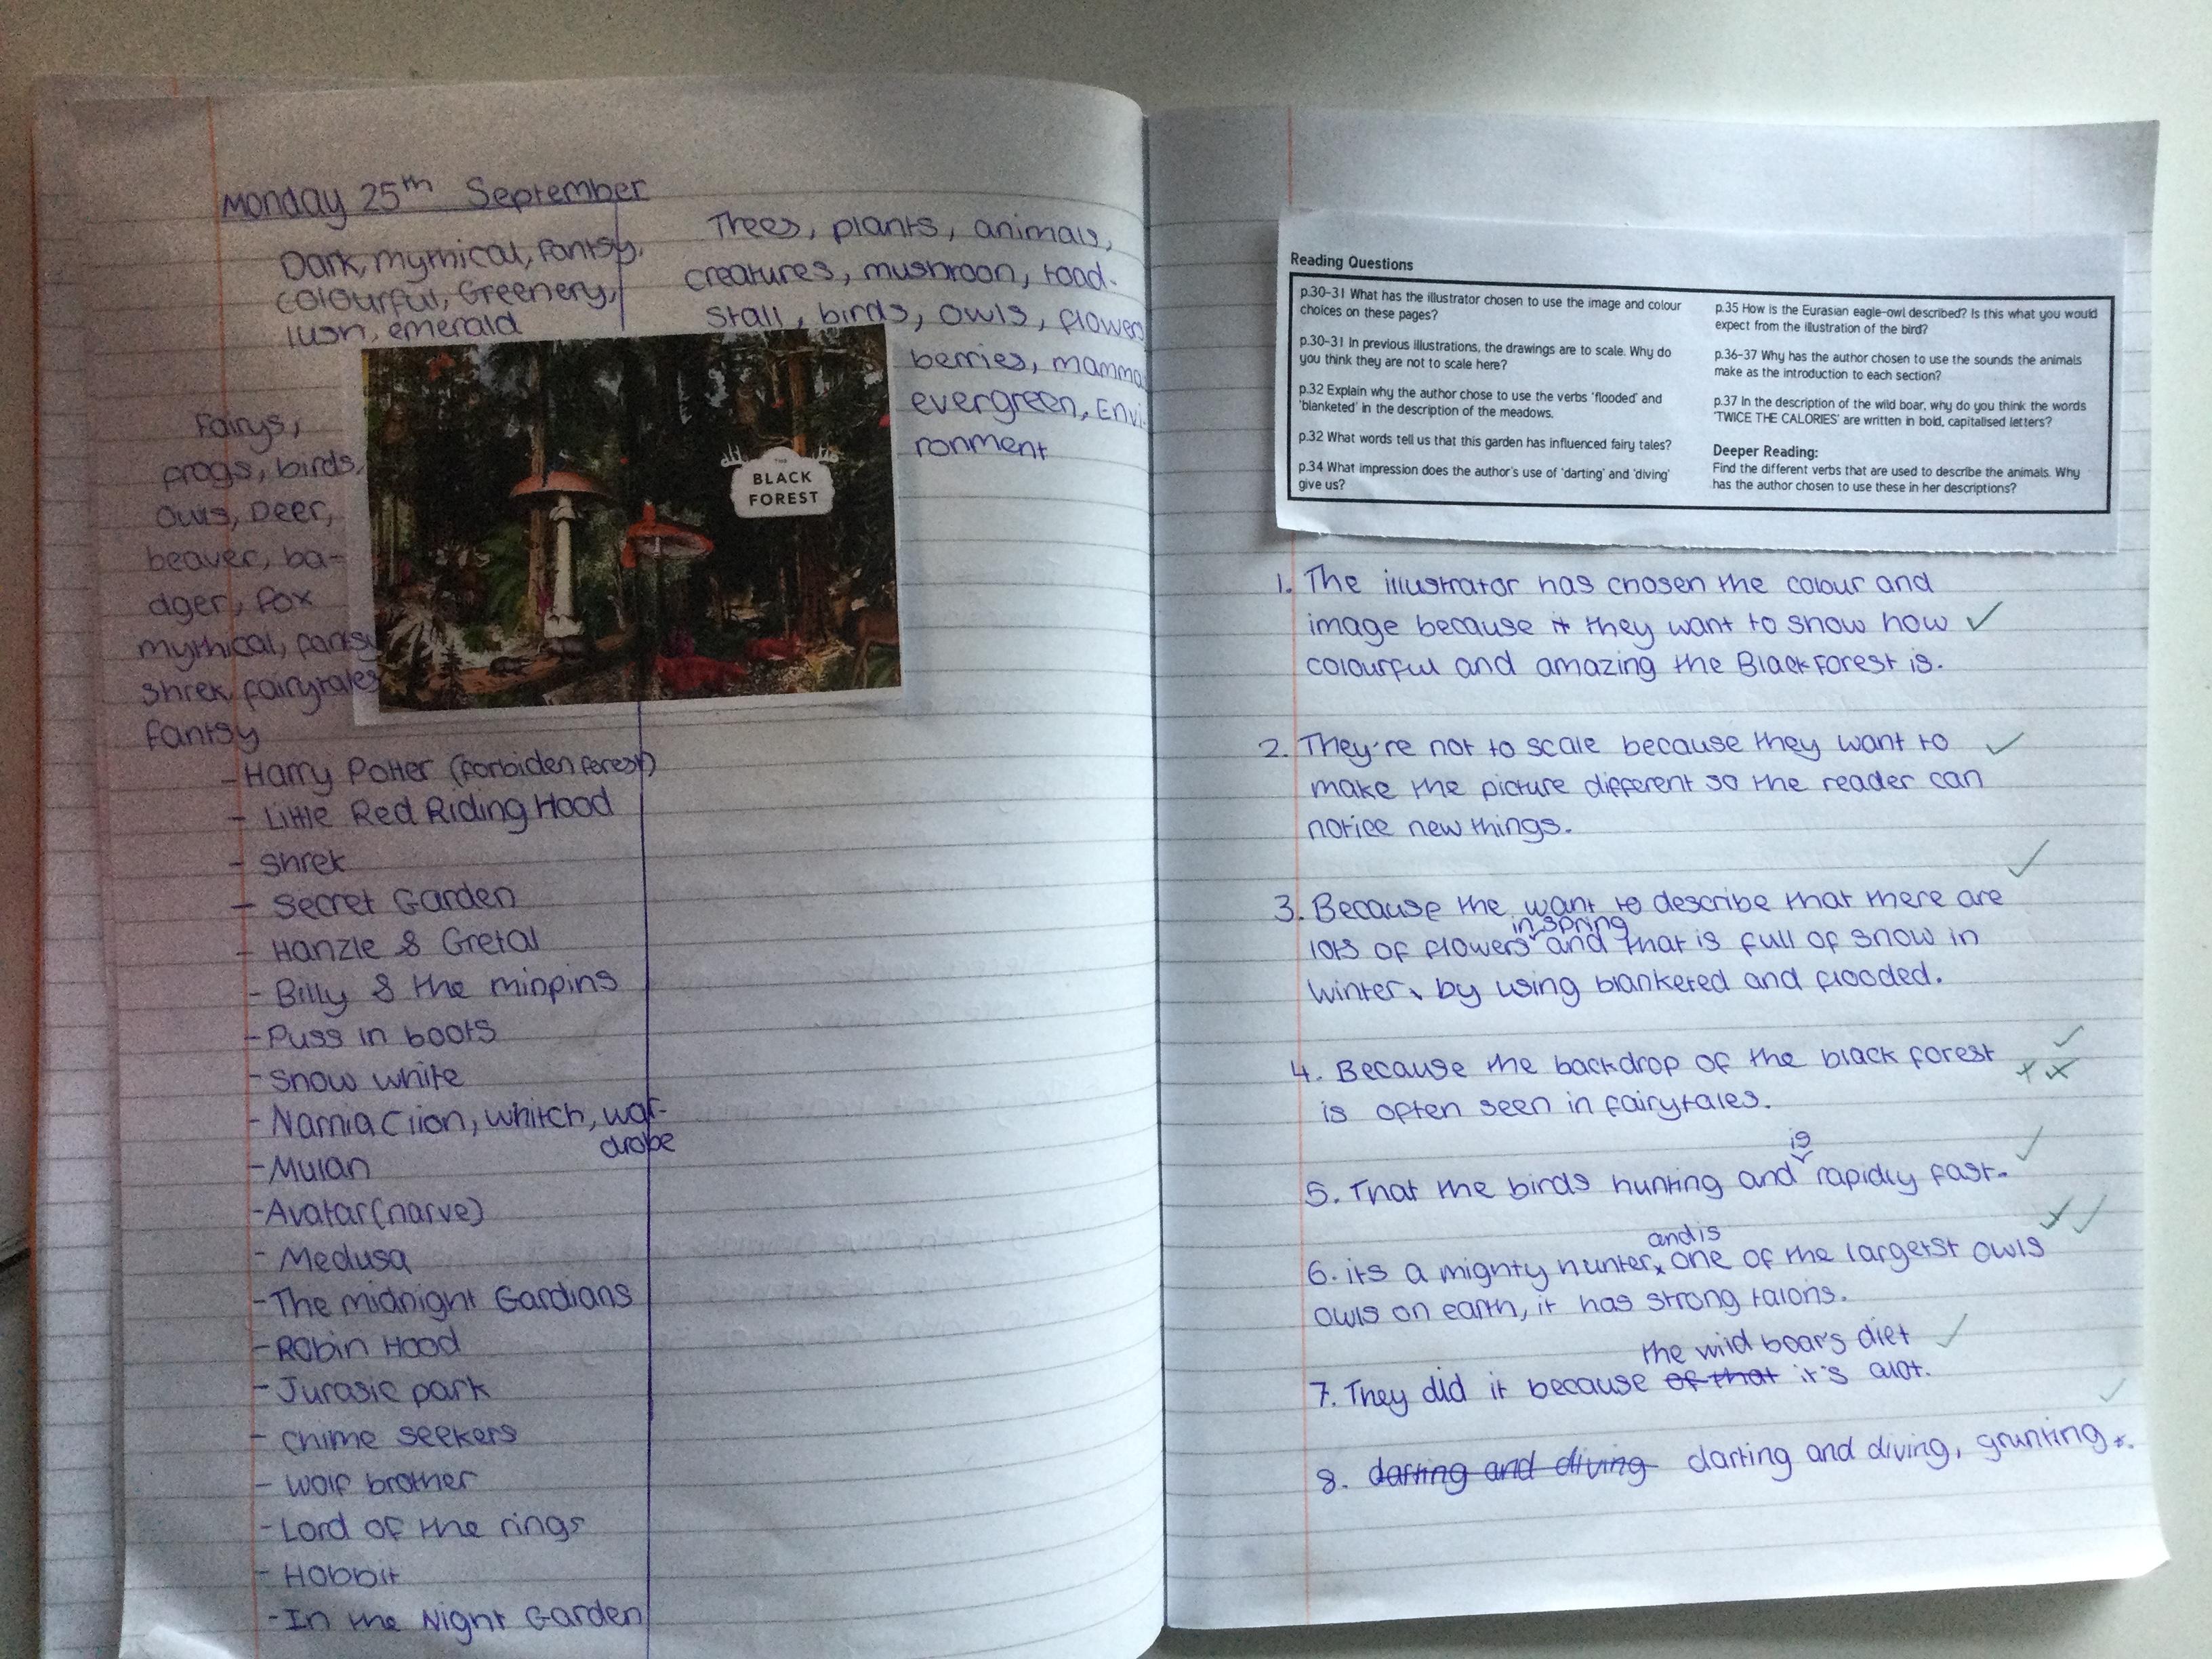 Monday 25th September
Dark, mythical, fantsy,
colourful, Greenery,
lush, emerald
Trees, plants, animals,
creatures, mushroon, toad-
stall, birds, owls, flowers
berries, mamma
evergreen, Envi-
ronment
Fairys,
frogs, birds,
owls, Deer,
beaver, ba-
dger, fox
mythical, fantsy
shrek, fairytales
fantsy
THE
BLACK
FOREST
- Harry Potter (forbiden forest)
- Little Red Riding Hood
- Shrek
- Secret Garden
- Hanzle & Gretal
- Billy & the minpins
- Puss in boots
- Snow white
- Narnia (lion, whitch, war-
drobe
- Mulan
- Avatar (narve)
- Medusa
- The midnight Gardians
- Robin Hood
- Jurasic park
- Chime seekers
- Wolf brother
- Lord of the rings
- Hobbit
- In the Night Garden
Reading Questions
p.30-31 What has the illustrator chosen to use the image and colour
choices on these pages?
p.30-31 In previous illustrations, the drawings are to scale. Why do
you think they are not to scale here?
p.32 Explain why the author chose to use the verbs 'flooded' and
'blanketed' in the description of the meadows.
p.32 What words tell us that this garden has influenced fairy tales?
p.34 What impression does the author's use of 'darting' and 'diving'
give us?
p.35 How is the Eurasian eagle-owl described? Is this what you would
expect from the illustration of the bird?
p.36-37 Why has the author chosen to use the sounds the animals
make as the introduction to each section?
p.37 In the description of the wild boar, why do you think the words
'TWICE THE CALORIES' are written in bold, capitalised letters?
Deeper Reading:
Find the different verbs that are used to describe the animals. Why
has the author chosen to use these in her descriptions?
1. The illustrator has chosen the colour and
image because it they want to show how
colourful and amazing the Black Forest is.
2. They're not to scale because they want to
make the picture different so the reader can
notice new things.
3. Because the want to describe that there are
in spring
lots of flowers and that is full of snow in
winter, by using blanketed and flooded.
4. Because the backdrop of the black forest
is often seen in fairytales.
is
5. That the birds hunting and rapidly fast.
and is
6. its a mighty hunter, one of the largetst owls
owls on earth, it has strong talons.
the wild boar's diet
7. They did it because of that it's alot.
8. darting and diving darting and diving, grunting.